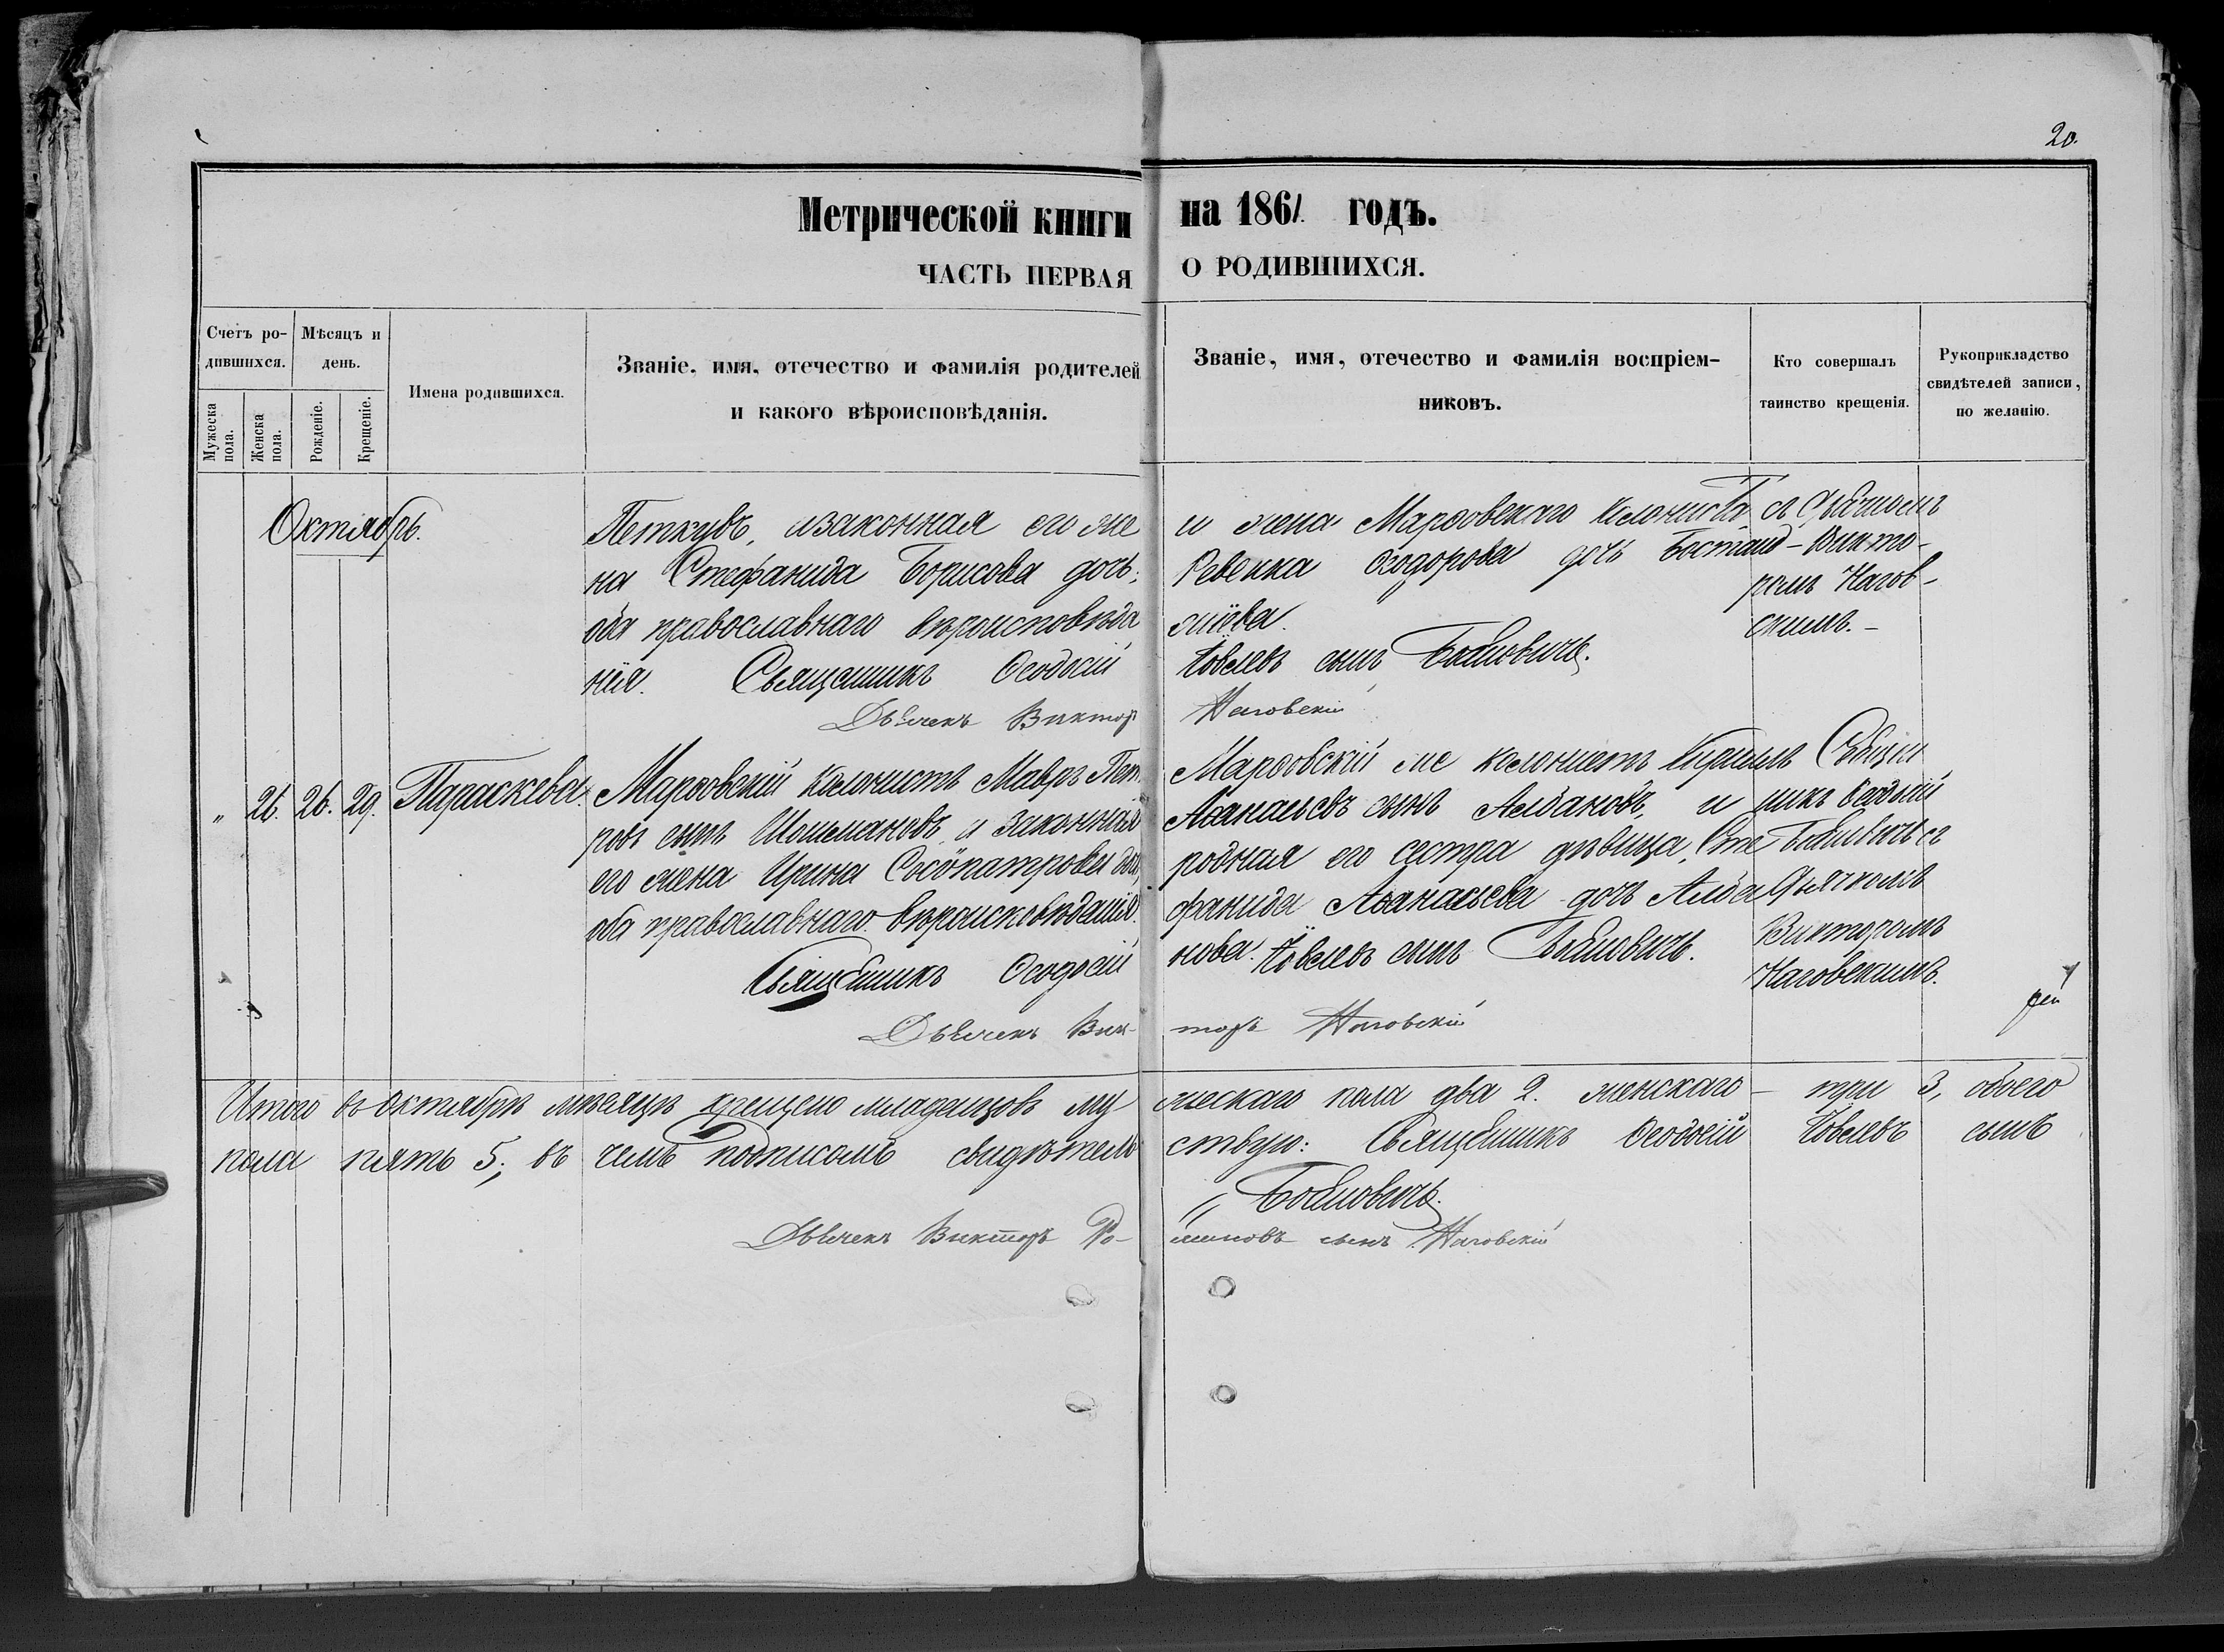 20.
Метрической книги на 1861 годъ.
ЧАСТЬ ПЕРВАЯ О РОДИВШИХСЯ.
Счетъ ро-
дившихся.
Мѣсяцъ и
день.
Мужеска
пола.
Женска
пола.
Рожденіе.
Крещеніе.
Имена родившихся.
Званіе, имя, отечество и фамилія родителей
и какого вѣроисповѣданія.
Званіе, имя, отечество и фамилія воспріем-
никовъ.
Кто совершалъ
таинство крещенія.
Рукоприкладство
свидѣтелей записи,
по желанію.
Октябрь.
Петковъ, и законная его же
на Стефанида Борисова дочь;
оба православнаго вѣроисповѣда
нія. Священникъ Ѳеодосій
Дьячекъ Викторъ
и жена Марѳовскаго колониста
Ревекка Ѳеодорова дочь
Іовлевъ сынъ
Наговскій
съ Дьячкомъ
Викто-
ромъ Нагов-
скимъ.
" 26. 26. 29. Параскева.
Марѳовскій колонистъ Мавръ Пет
ровъ сынъ и законная
его жена Ирина Сосипатрова дочь,
оба православнаго вѣроисповѣданія.
Священникъ Ѳеодосій
Дьячекъ Вик-
Марѳовскій же колонистъ Кириллъ
Аѳанасьевъ сынъ Алдановъ, и
родная его сестра дѣвица, Сте
фанида Аѳанасьева дочь Алда
нова. Іовлевъ сынъ
торъ Наговскій
Священ
никъ Ѳеодосій
съ
Дьячкомъ
Викторомъ
Наговскимъ.
Итого въ Октябрѣ мѣсяцѣ крещено младенцовъ му
жескаго пола два 2. женскаго - три 3, обоего
пола пять 5; въ чемъ подписомъ свидѣтель
ствую: Священникъ Ѳеодосій Іовлевъ сынъ
Дьячекъ Викторъ
сынъ Наговскій